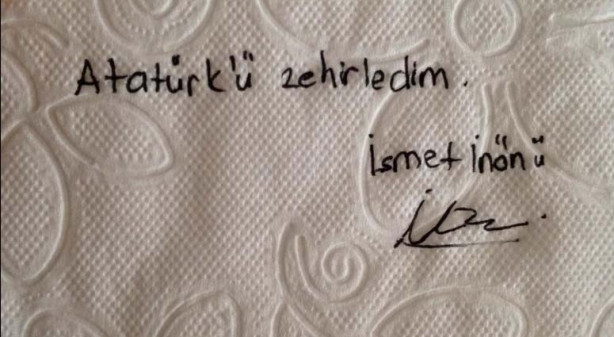 Atatürk'ü zehirledim.
İsmet İnönü